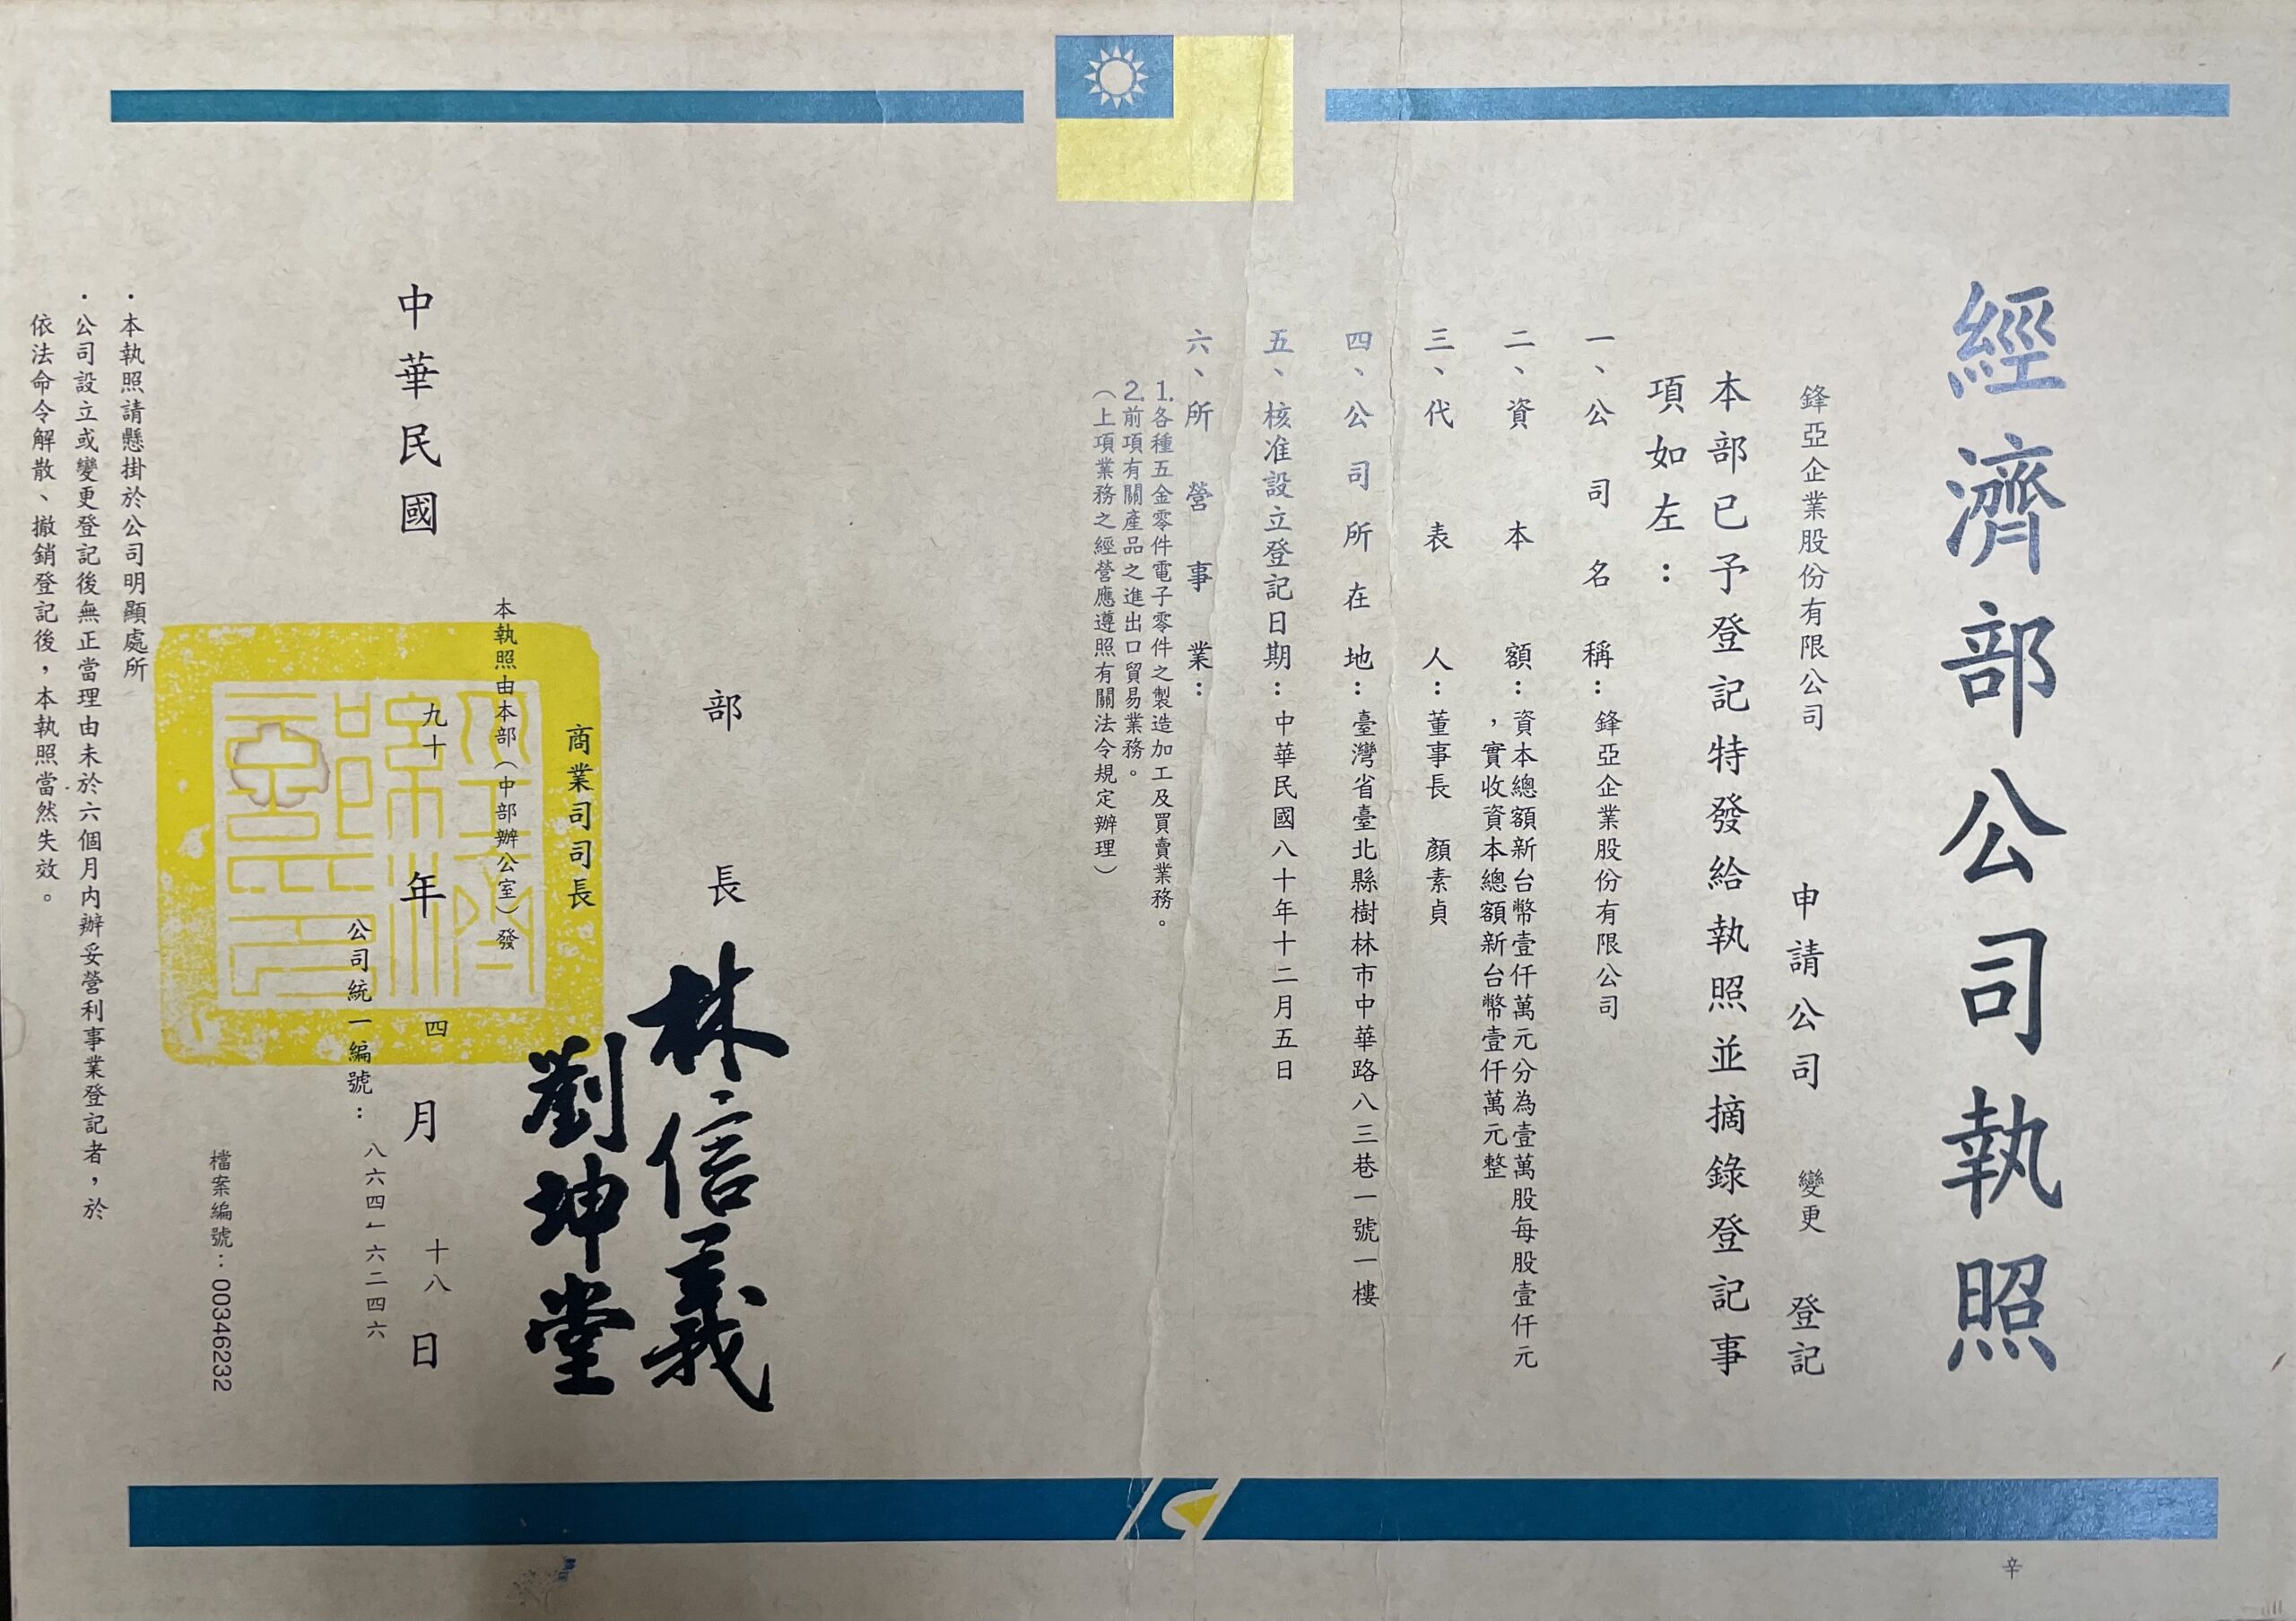 經濟部公司執照
鋒亞企業股份有限公司 申請公司 變更 登記
本部已予登記特發給執照並摘錄登記事
項如左：
一、公司名稱：鋒亞企業股份有限公司
二、資本額：資本總額新台幣壹仟萬元分為壹萬股每股壹仟元
，實收資本總額新台幣壹仟萬元整
三、代表人：董事長 顏素貞
四、公司所在地：臺灣省臺北縣樹林市中華路八三巷一號一樓
五、核准設立登記日期：中華民國八十年十二月五日
六、所營事業：
1.各種五金零件電子零件之製造加工及買賣業務。
2.前項有關產品之進出口貿易業務。
（上項業務之經營應遵照有關法令規定辦理）
部長 林信義
商業司司長 劉坤堂
本執照由本部（中部辦公室）發
中華民國 九十 年 四 月 十八 日
公司統一編號：八六四一六二四六
檔案編號：00346232
．本執照請懸掛於公司明顯處所
．公司設立或變更登記後無正當理由未於六個月內辦妥營利事業登記者，於
依法命令解散、撤銷登記後，本執照當然失效。
辛